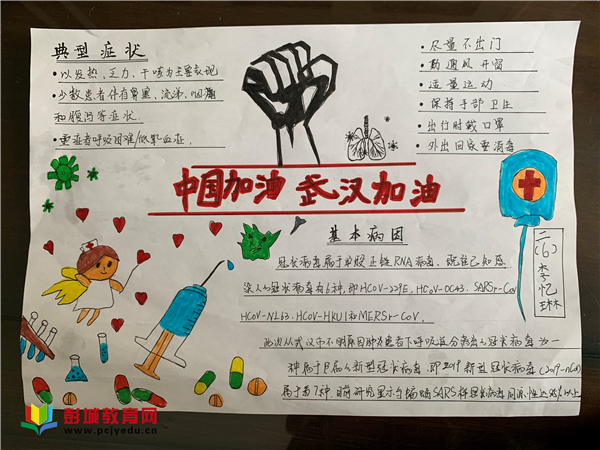 典型症状
•以发热、乏力、干咳为主要表现
•少数患者伴有鼻塞、流涕、咽痛
和腹泻等症状.
•重症者呼吸困难/低氧血症.
•尽量不出门
•勤通风开窗
•适量运动
•保持手部卫生
•出行时戴口罩
•外出回家要消毒
中国加油 武汉加油
基本病因
冠状病毒属于单股正链RNA病毒,
染人的冠状病毒有6种,即HCoV-229E, HCoV-OC43. SARSr-CoV
HCoV-NL63. HCoV-HKU1和MERSr-CoV.
此次从武汉市不明原因肺炎患者下呼吸道分离出的冠状病毒为一
种属于β属的新型冠状病毒,即2019新型冠状病毒(2019-nCoV)
属于第7种.目前研究显示与蝙蝠SARS样冠状病毒同源性达85%以上
二(6)李忆琳
彭城教育网
www.pcjyedu.cn